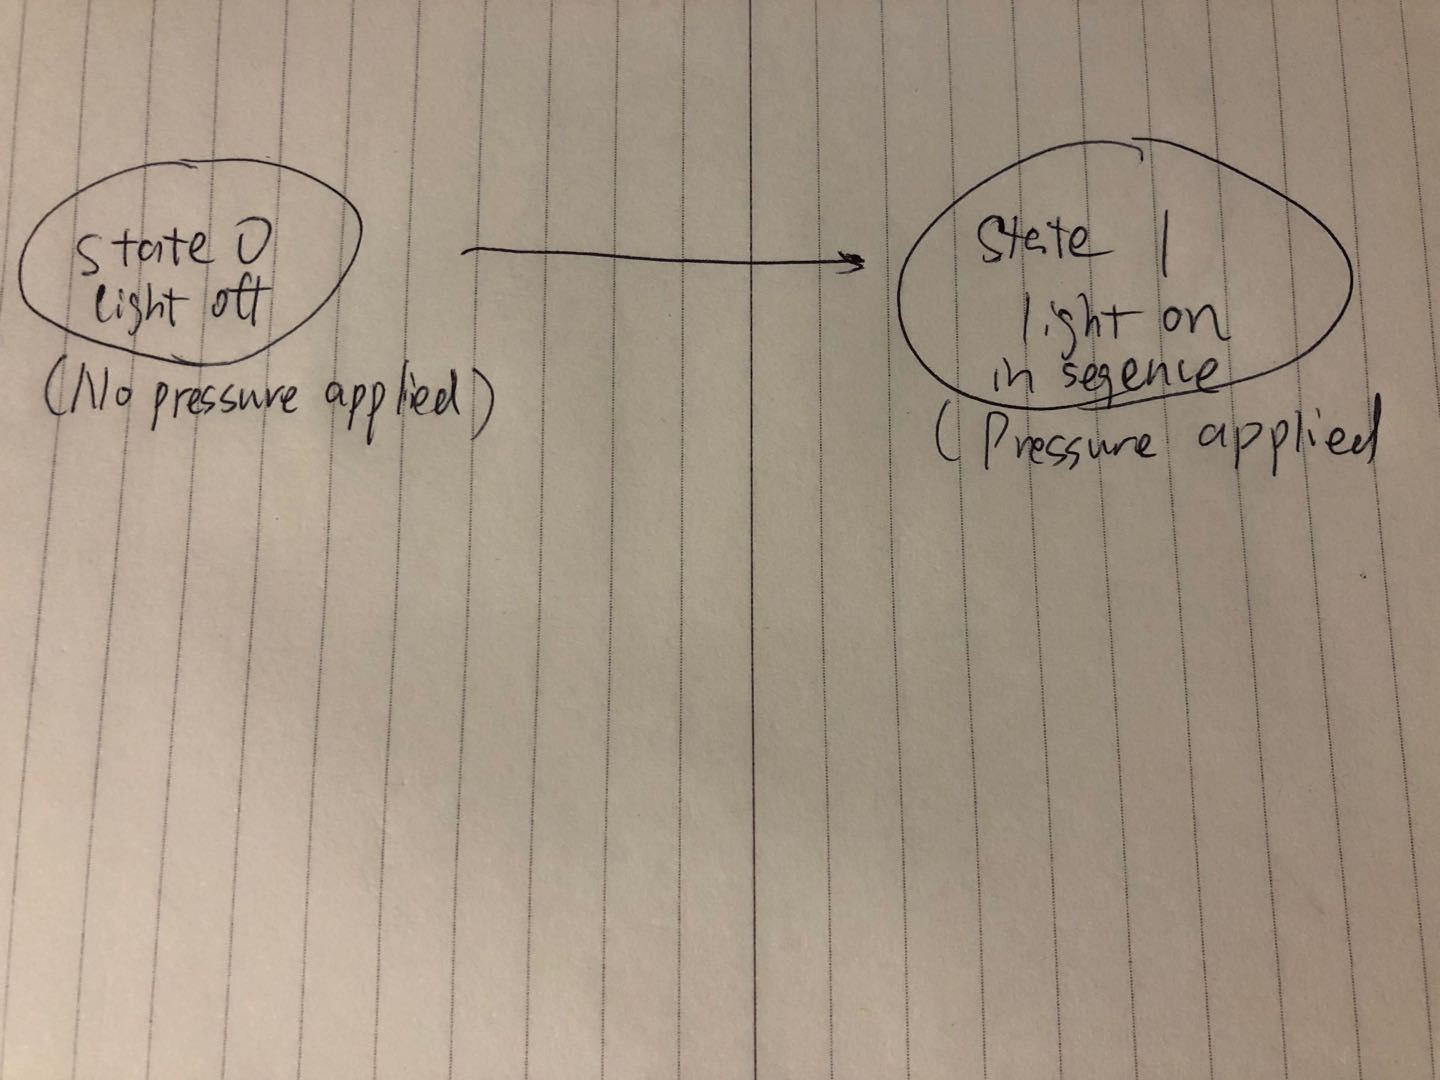 state 0
light off
(No pressure applied)
state 1
light on
in seqence
(Pressure applied